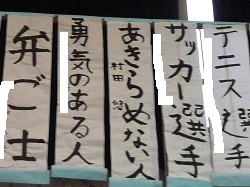 テニス選手
サッカー選手
あきらめない人
村田 悠
勇気のある人
弁ご士